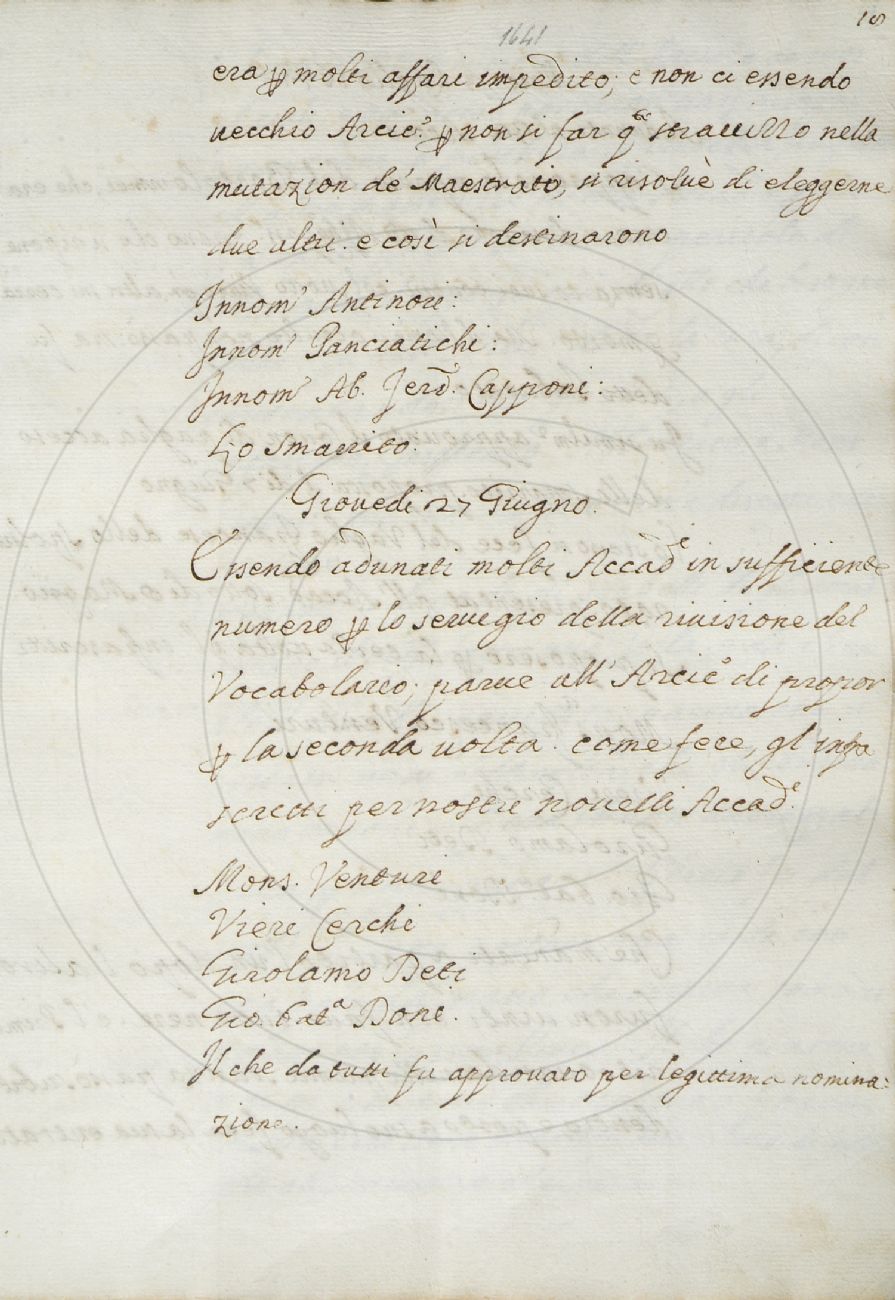 1641
era ꝑ molti affari impedito; e non ci essendo
uecchio Arcic.º ꝑ non si far q.º strauizzo nella
mutazion de' Maestrati, si risoluè di eleggerne
due altri. e così si destinarono
Innom.º Antinori:
Innom.º Panciatichi:
Innom.º Ab. Ferd. Capponi:
Lo Smarrito.
Giouedi 27 Giugno.
Essendo adunati molti Accad.ci in sufficiente
numero ꝑ lo seruigio della riuisione del
Vocabolario; parue all' Arcic.º di propor
ꝑ la seconda uolta. come fece, gl' infra
scritti per nostri nouelli Accad.ci
Mons. Venturi
Vieri Cerchi
Girolamo Deti
Gio. bat.a Doni.
Il che da tutti fu approuato per legittima nomina:
zione.